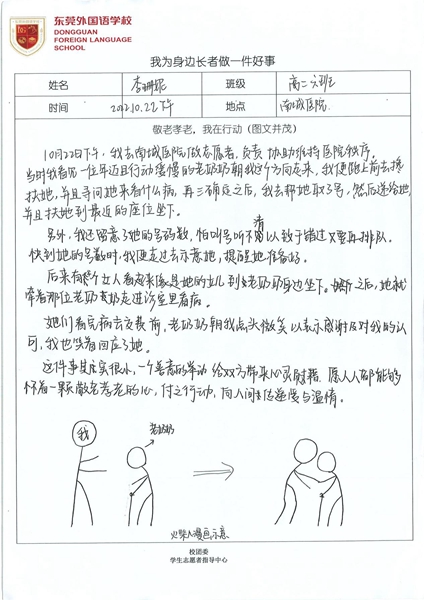 东莞外国语学校
DONGGUAN
FOREIGN LANGUAGE
SCHOOL
我为身边长者做一件好事
姓名 李珊妮 班级 高二6班
时间 2012.10.22下午 地点 南城医院
敬老孝老,我在行动(图文并茂)
10月22日下午,我去南城医院做志愿者,负责协助维持医院秩序。
当时我看见一位年迈且行动缓慢的老奶奶朝我这个方向走来,我便跑上前去搀
扶她,并且寻问她来看什么病,再三确定之后,我去帮她取了号,然后递给她,
并且扶她到最近的座位坐下。
另外,我还留意了她的号码数,怕叫号听不清以致于错过又要再排队。
快到她的号数时,我便走过去示意她,提醒她准备好。
后来有个女人看起来像是她的女儿到老奶奶身边坐下。之后,她就
牵着那位老奶奶走进诊室里看病。
她们看完病去交费前,老奶奶朝我点头微笑以表示感谢及对我的认
可,我也笑着回应了她。
这件事其实很小,一个善意的举动给双方带来心灵慰藉。愿人人都能够
怀着一颗敬老孝老的心,付之行动,向人间传递爱与温情。
我
老奶奶
火柴人漫画示意
校团委
学生志愿者指导中心